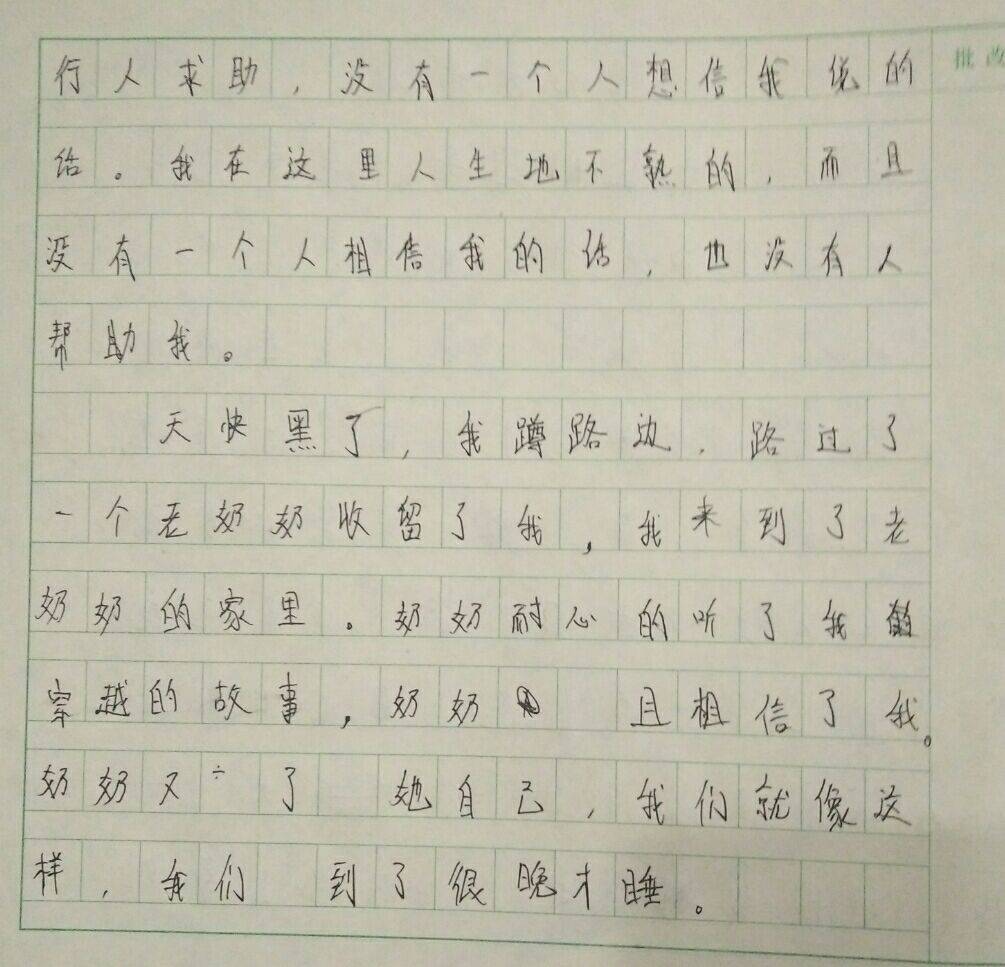 行人求助，没有一个人想信我说的
话。我在这里人生地不熟的，而且
没有一个人相信我的话，也没有人
帮助我。
天快黑了，我蹲路边，路过了
一个老奶奶收留了我，我来到了老
奶奶的家里。奶奶耐心的听了我
穿越的故事，奶奶 且相信了我。
奶奶又 了 她自己，我们就像这
样，我们 到了很晚才睡。
批改